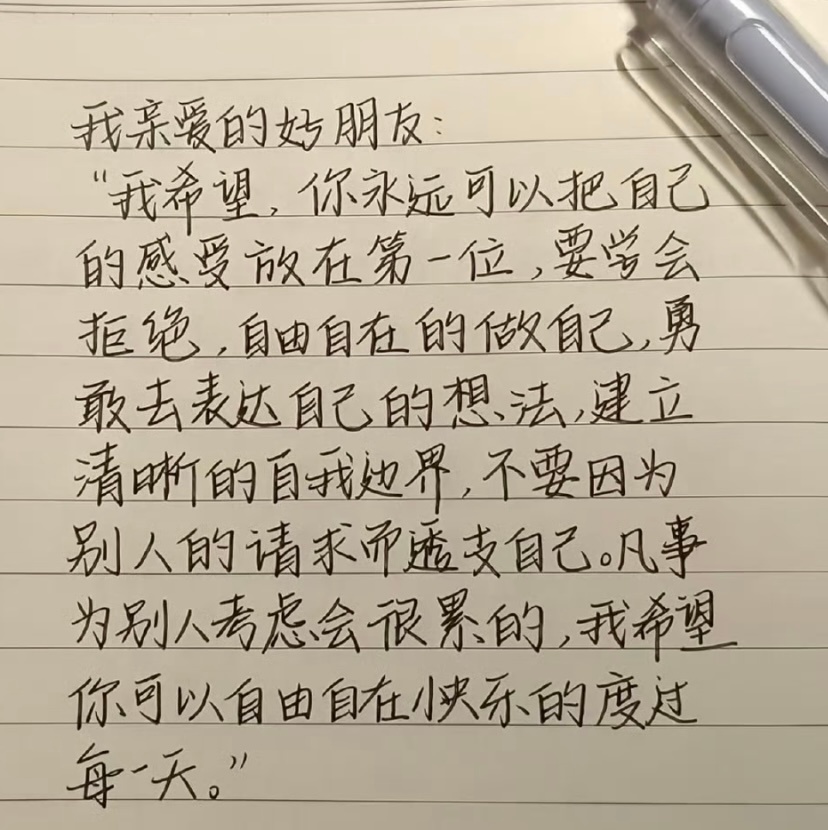 我亲爱的好朋友：
“我希望，你永远可以把自己
的感受放在第一位，要学会
拒绝，自由自在的做自己，勇
敢去表达自己的想法，建立
清晰的自我边界，不要因为
别人的请求而透支自己。凡事
为别人考虑会很累的，我希望
你可以自由自在快乐的度过
每一天。”